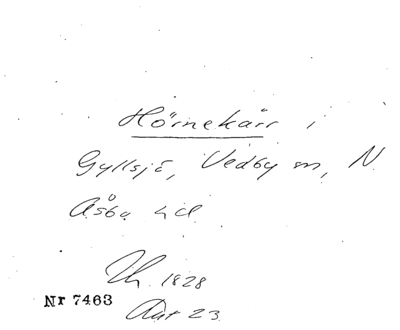 Hörnekärr i
Gyllsjö, Vedby sn, N.
Åsbo hd
1828
Nr 7463
Akt 23.